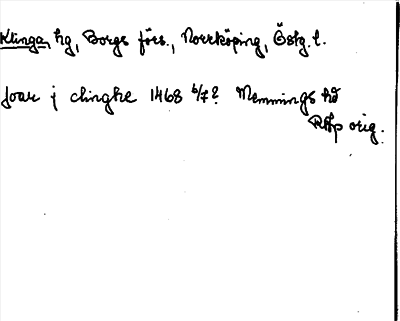 Klinga, hg, Borgs förs., Norrköping, Östg. l.
Joar j clingke 1468 6/7? Memmings hd
RAp orig.